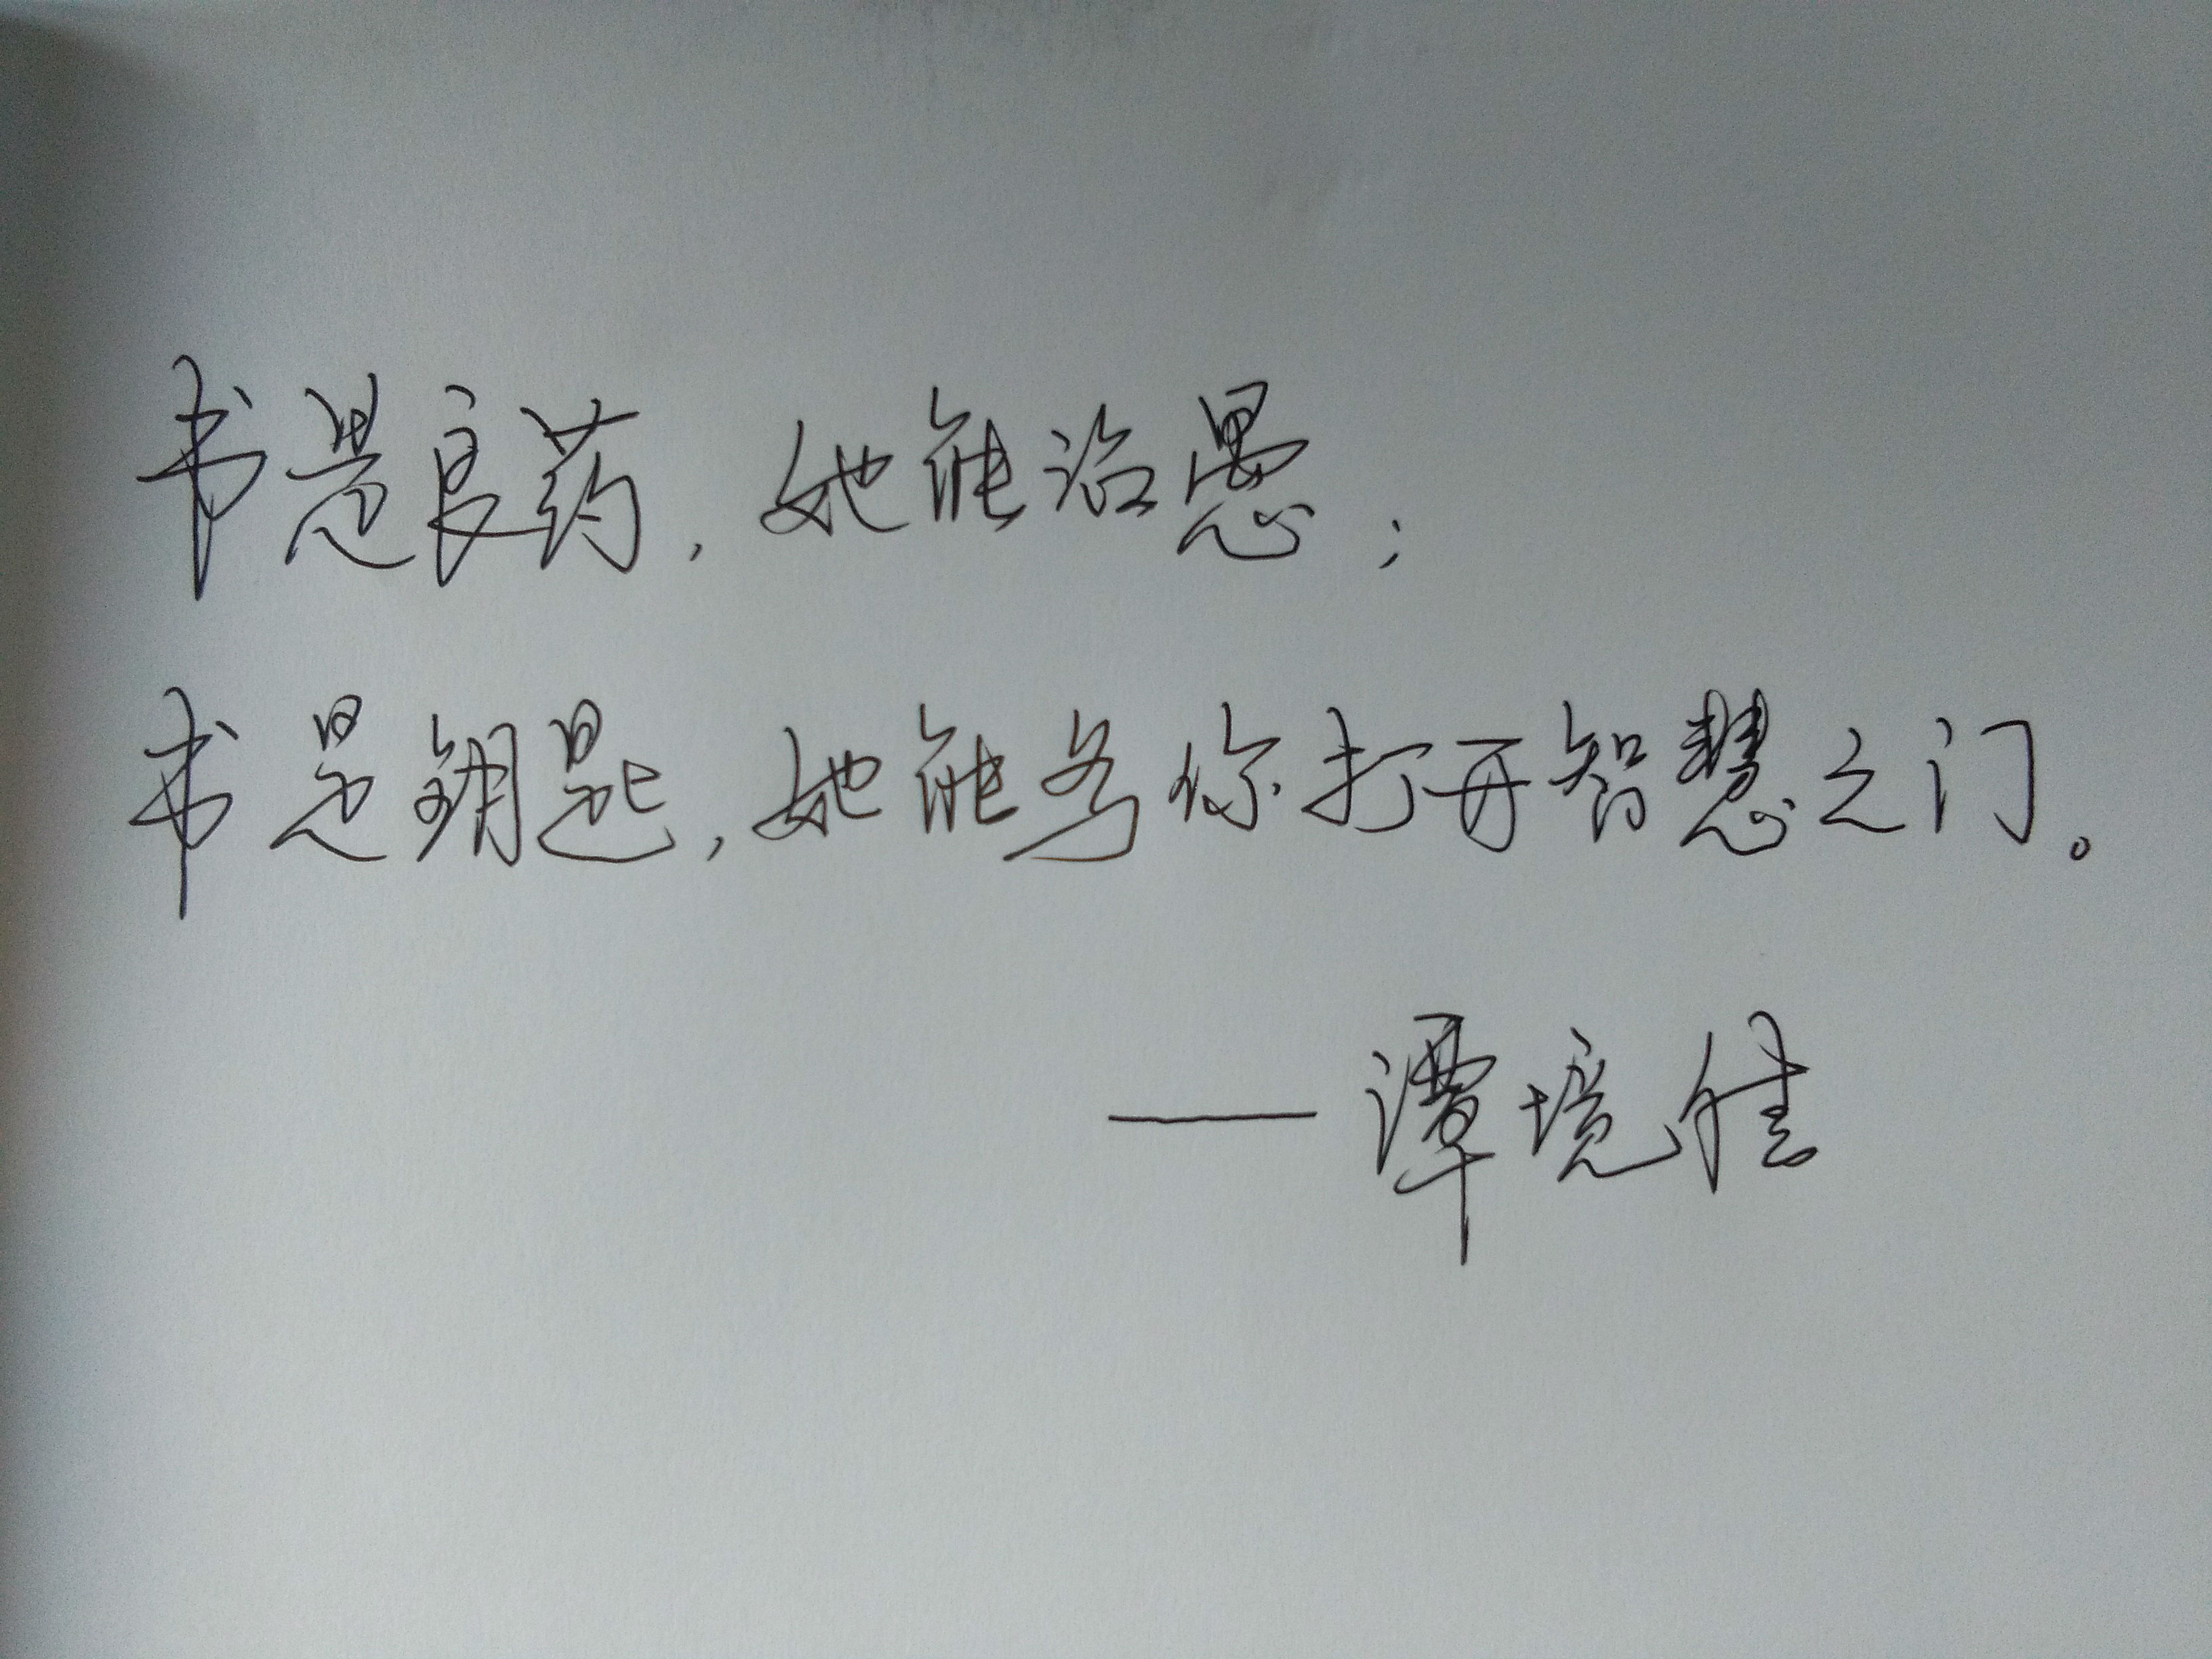 书是良药，她能治愚；
书是钥匙，她能为你打开智慧之门。
——谭境佳